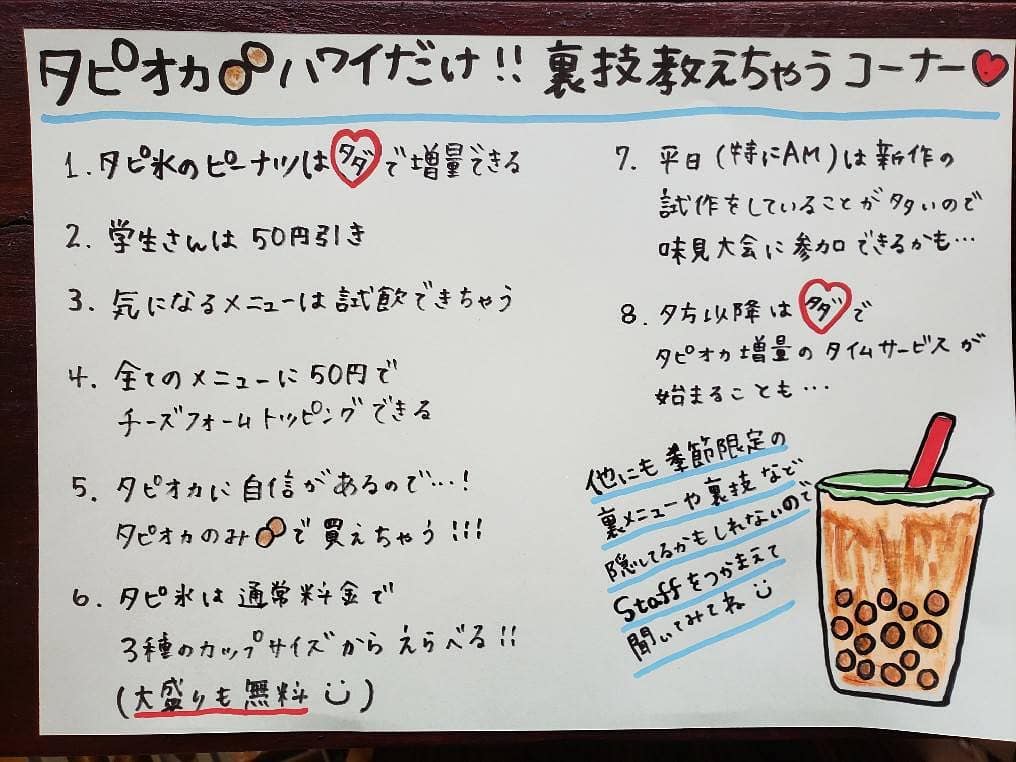 タピオカハワイだけ!! 裏技教えちゃうコーナー
1. タピ氷のピーナツはタダで増量できる
2. 学生さんは50円引き
3. 気になるメニューは試飲できちゃう
4. 全てのメニューに50円で
チーズフォームトッピングできる
5. タピオカに自信があるので…!
タピオカのみで買えちゃう!!!
6. タピ氷は通常料金で
3種のカップサイズからえらべる!!
(大盛りも無料)
7. 平日(特にAM)は新作の
試作をしていることが多いので
味見大会に参加できるかも…
8. 夕方以降はタダで
タピオカ増量のタイムサービスが
始まることも…
他にも季節限定の
裏メニューや裏技など
隠してるかもしれないので
Staffをつかまえて
聞いてみてね